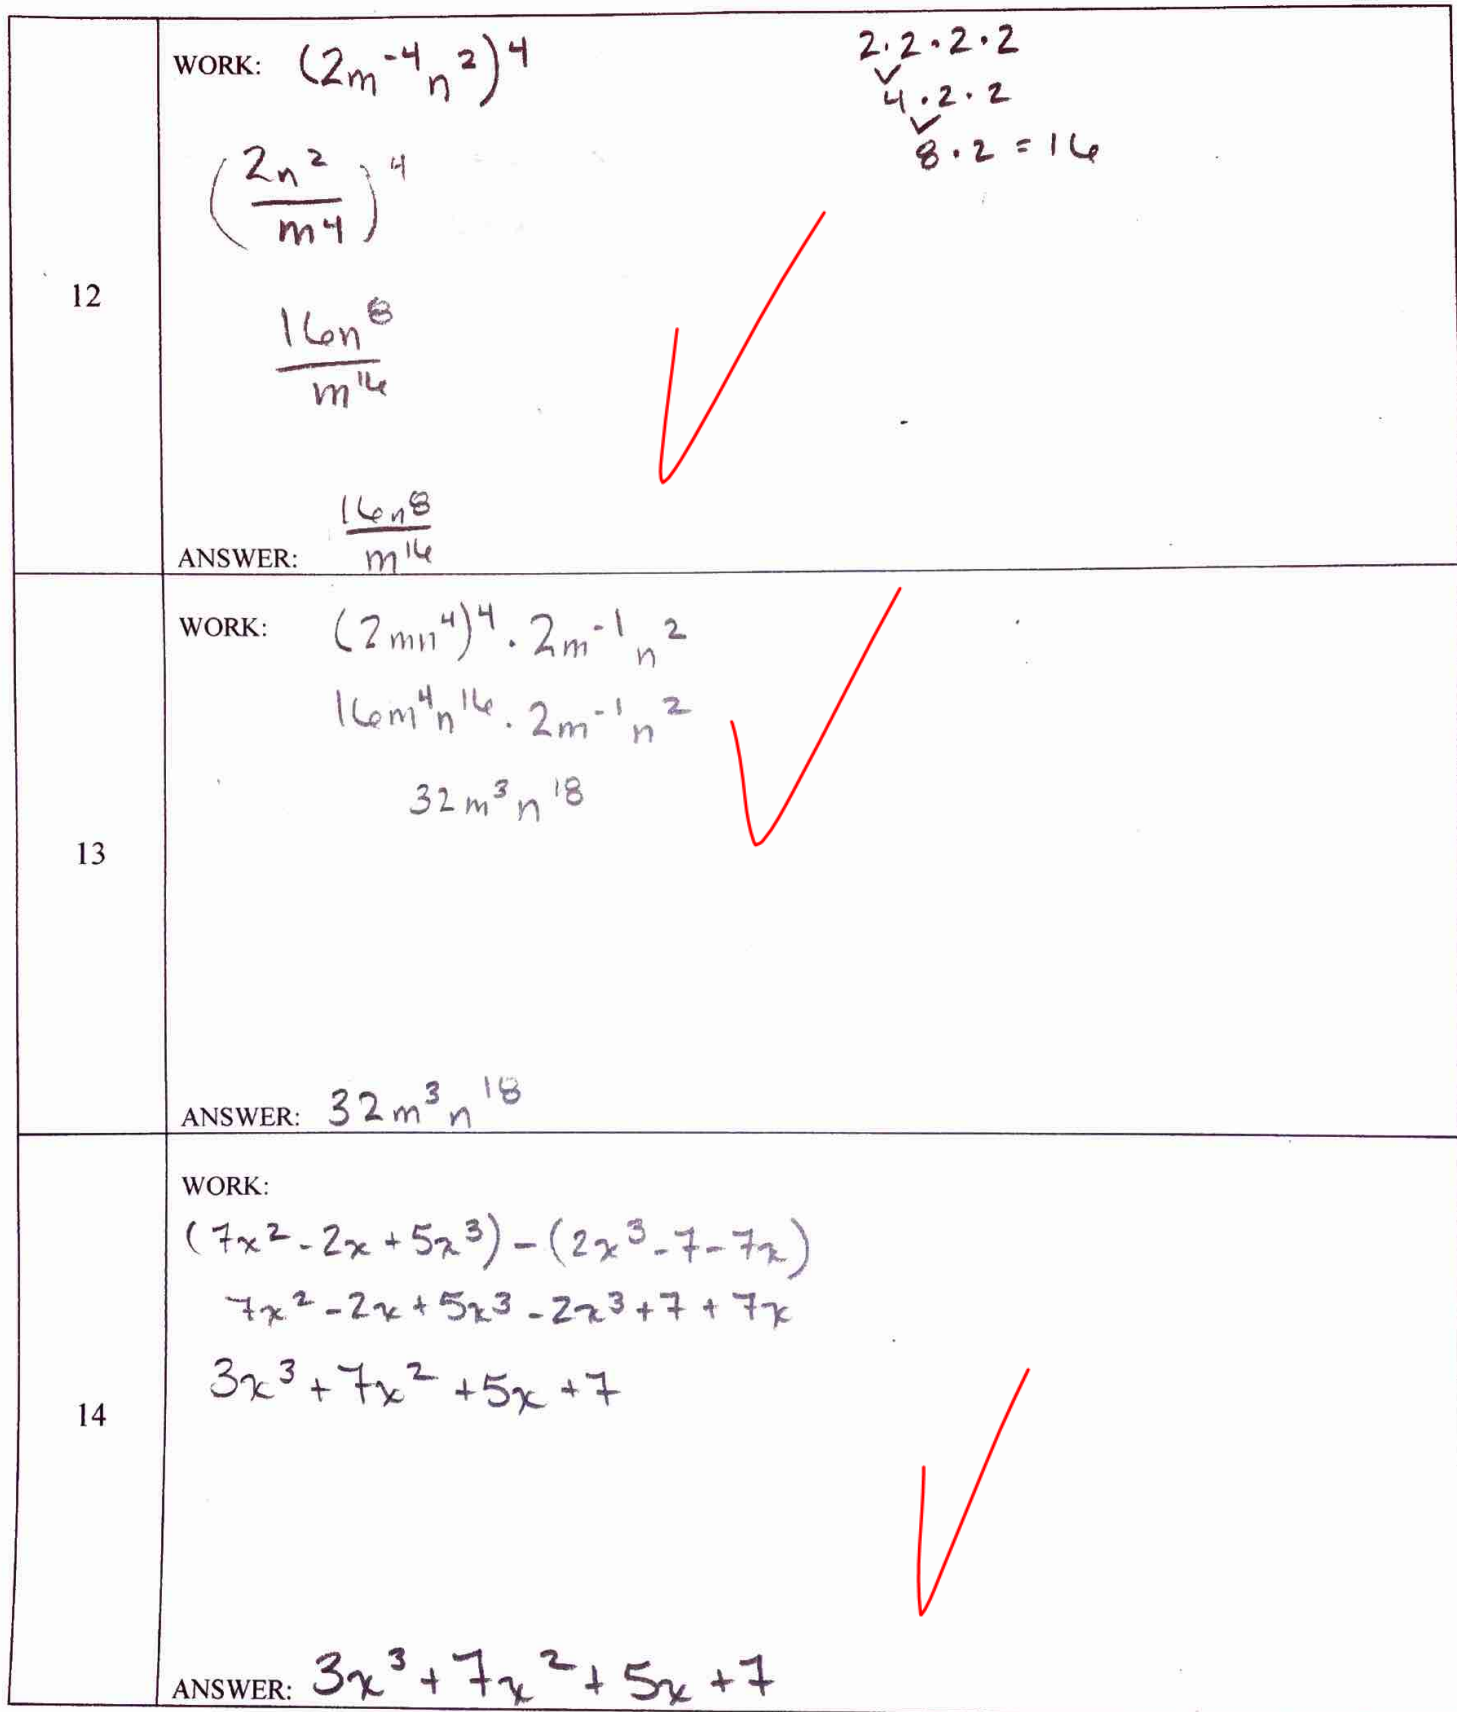 12
WORK: (2m⁻⁴n²)⁴
2·2·2·2
4·2·2
8·2=16
(2n²/m⁴)⁴
16n⁸/m¹⁶
ANSWER: 16n⁸/m¹⁶
13
WORK: (2mn⁴)⁴·2m⁻¹n²
16m⁴n¹⁶·2m⁻¹n²
32m³n¹⁸
ANSWER: 32m³n¹⁸
14
WORK:
(7x²-2x+5x³)-(2x³-7-7x)
7x²-2x+5x³-2x³+7+7x
3x³+7x²+5x+7
ANSWER: 3x³+7x²+5x+7